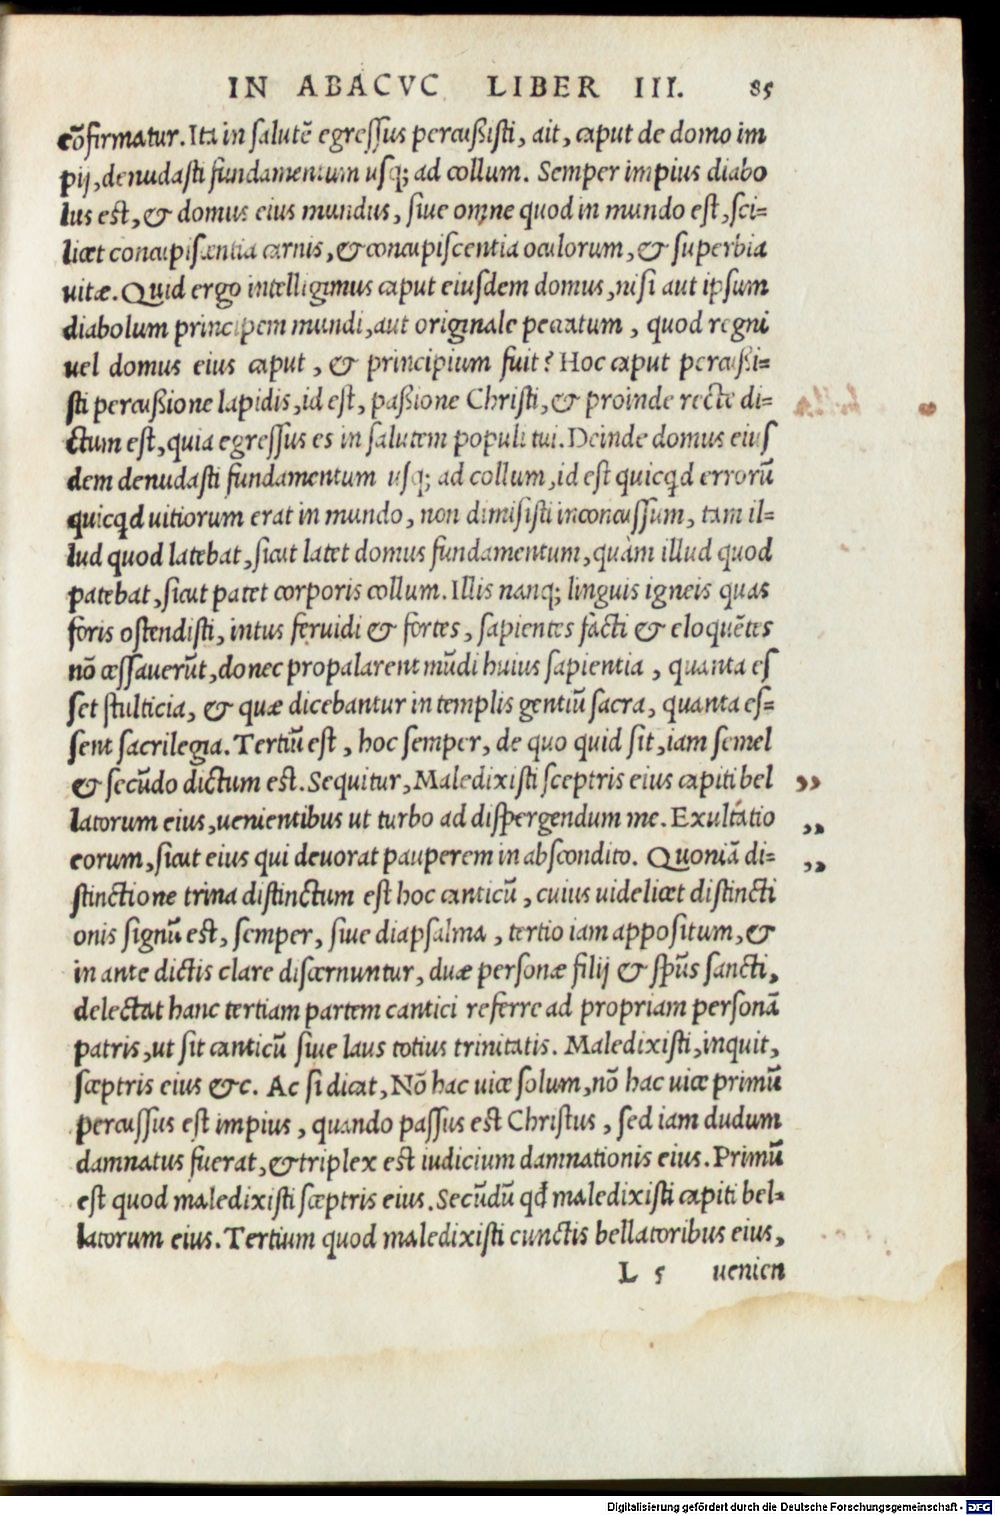 IN ABACVC LIBER III. 85
cõfirmatur. Ita in salutẽ egressus percußisti, ait, caput de domo im
pij, denudasti fundamentum usq; ad collum. Semper impius diabo
lus est, & domus eius mundus, siue omne quod in mundo est, sci=
licet concupiscentia carnis, & concupiscentia oculorum, & superbia
uitæ. Quid ergo intelligimus caput eiusdem domus, nisi aut ipsum
diabolum principem mundi, aut originale peccatum, quod regni
uel domus eius caput, & principium fuit? Hoc caput percußi=
sti percußione lapidis, id est, paßione Christi, & proinde recte di=
ctum est, quia egressus es in salutem populi tui. Deinde domus eius
dem denudasti fundamentum usq; ad collum, id est quicqd errorũ
quicqd uitiorum erat in mundo, non dimisisti inconcussum, tam il=
lud quod latebat, sicut latet domus fundamentum, quàm illud quod
patebat, sicut patet corporis collum. Illis nanq; linguis igneis quas
foris ostendisti, intus feruidi & fortes, sapientes facti & eloquẽtes
nõ cessauerũt, donec propalarent mũdi huius sapientia, quanta es
set stulticia, & quæ dicebantur in templis gentiũ sacra, quanta es=
sent sacrilegia. Tertiũ est, hoc semper, de quo quid sit, iam semel
& secũdo dictum est. Sequitur, Maledixisti sceptris eius capiti bel ,,
latorum eius, uenientibus ut turbo ad dispergendum me. Exultatio ,,
eorum, sicut eius qui deuorat pauperem in abscondito. Quoniã di= ,,
stinctione trina distinctum est hoc canticũ, cuius uidelicet distincti
onis signũ est, semper, siue diapsalma, tertio iam appositum, &
in ante dictis clare discernuntur, duæ personæ filij & spũs sancti,
delectat hanc tertiam partem cantici referre ad propriam personã
patris, ut sit canticũ siue laus totius trinitatis. Maledixisti, inquit,
sceptris eius &c. Ac si dicat, Nõ hac uice solum, nõ hac uice primũ
percussus est impius, quando passus est Christus, sed iam dudum
damnatus fuerat, & triplex est iudicium damnationis eius. Primũ
est quod maledixisti sceptris eius. Secũdũ qđ maledixisti capiti bel=
latorum eius. Tertium quod maledixisti cunctis bellatoribus eius,
L 5 uenien
Digitalisierung gefördert durch die Deutsche Forschungsgemeinschaft - DFG